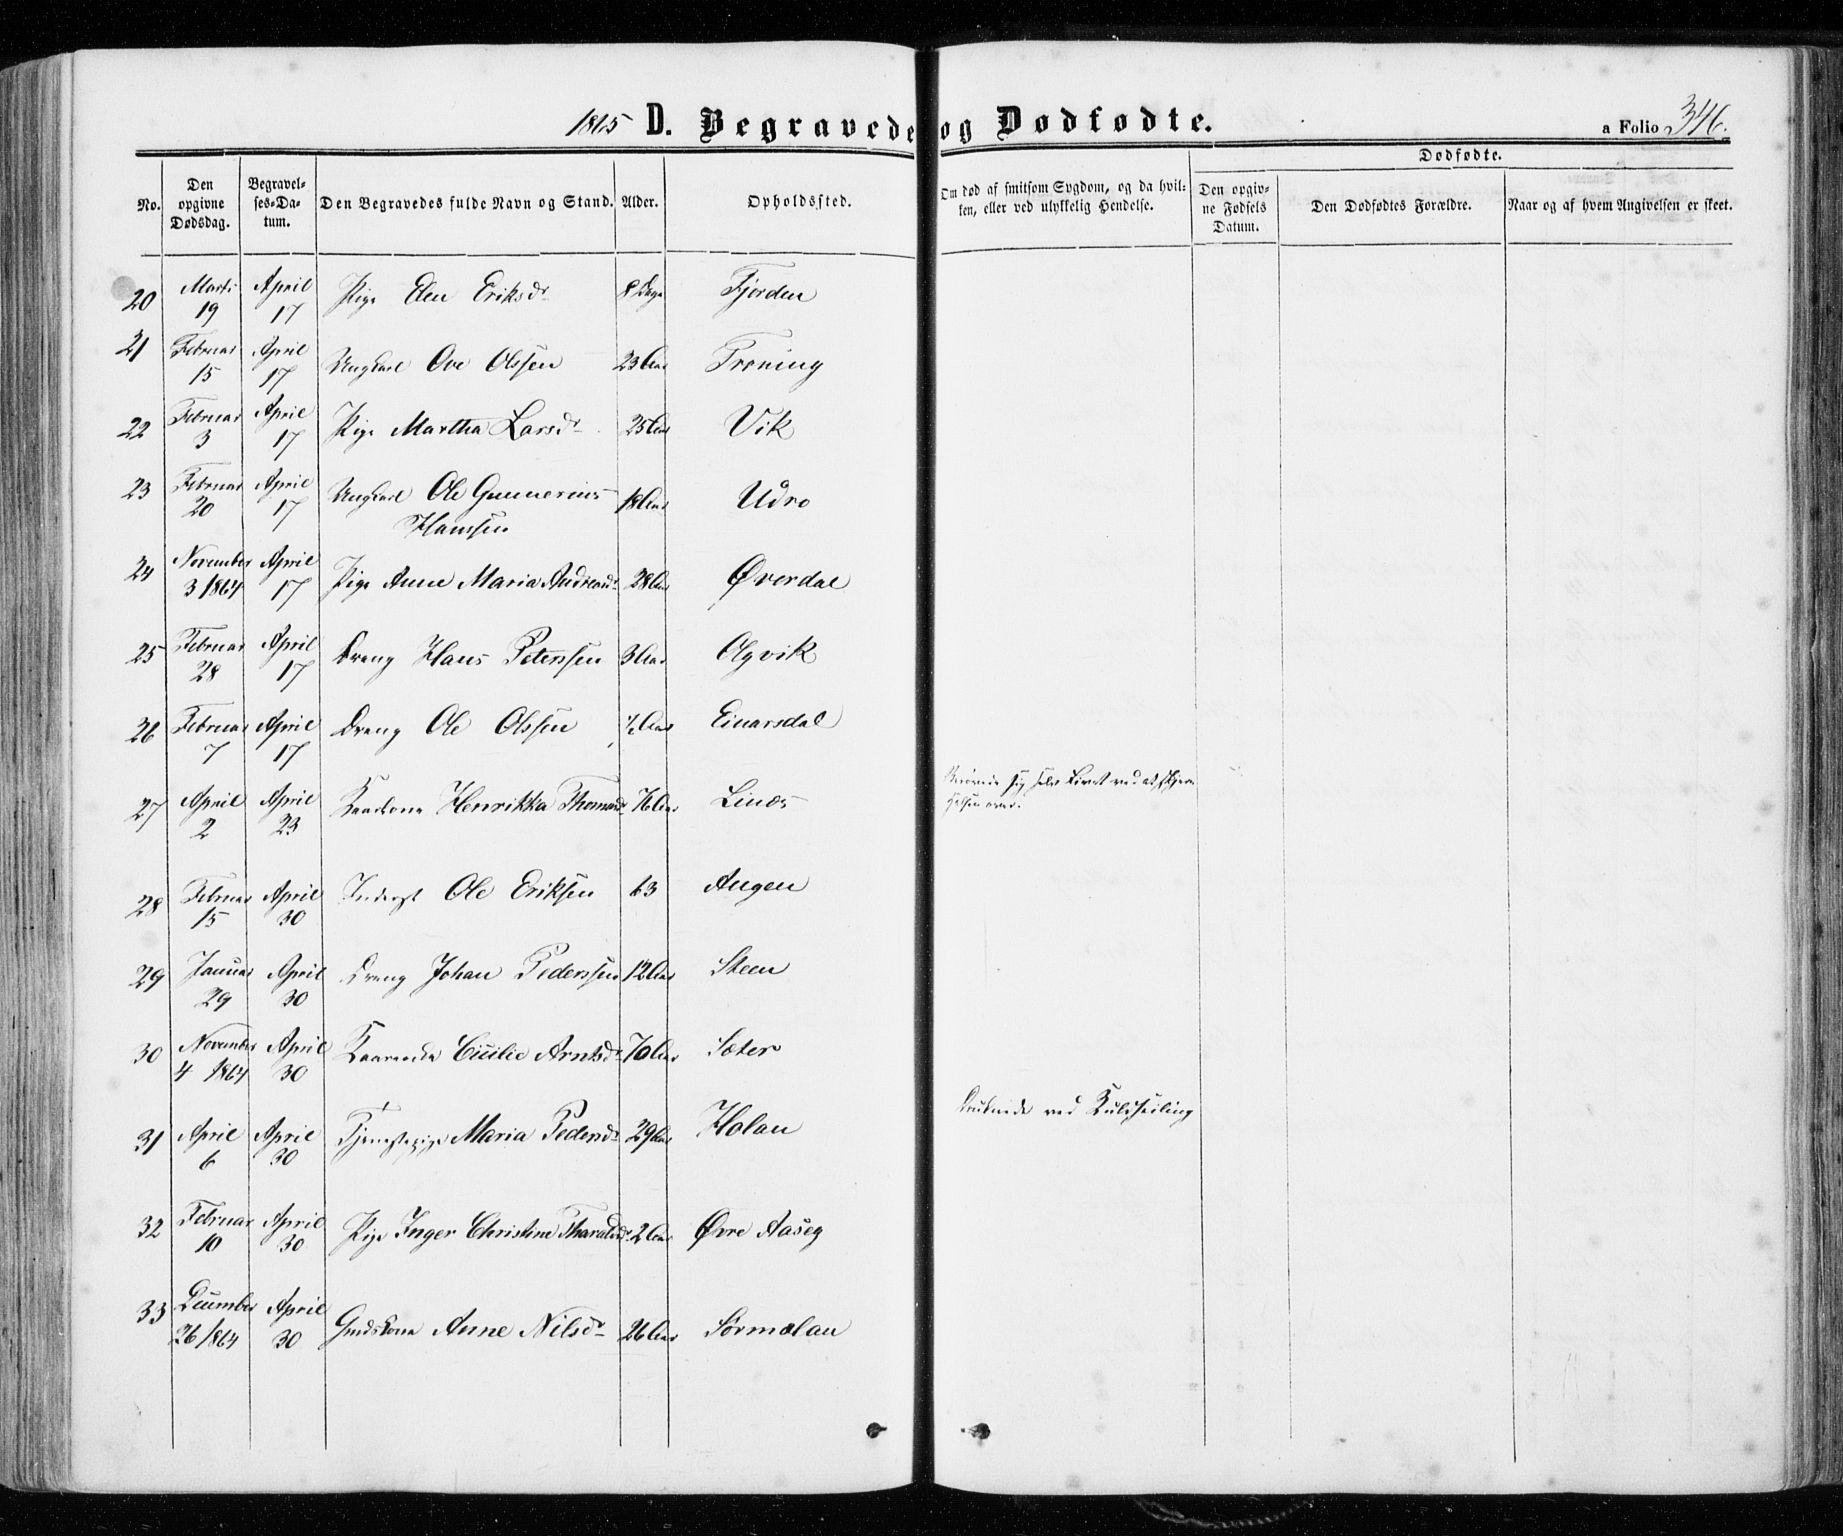 1865 D. Begravede og Dødfødte. a Folio 346.
Dødfødte.
No. Den opgivne Dødsdag. Begravelses-Datum. Den Begravedes fulde Navn og Stand. Alder. Opholdssted. Om død af smitsom Sygdom, og da hvilken, eller ved ulykkelig Hendelse. Den opgivne Fødsels Datum. Den Dødfødtes Forældre. Naar og af hvem Angivelsen er skeet.
20 Marts 19 April 17 Pige Elen Eriksdr 8 Dage Fjorden
21 Februar 15 April 17 Ungkarl Ove Olssen 23 Aar Trøning
22 Februar 3 April 17 Pige Martha Larsdr 25 Aar Vik
23 Februar 20 April 17 Ungkarl Ole Gunnerius Hanssen 18 Aar Udro
24 November 3 1864 April 17 Pige Anne Maria Andreasdr 28 Aar Øverdal
25 Februar 28 April 17 Dreng Hans Peterssen 3 Aar Olgvik
26 Februar 7 April 17 Dreng Ole Olssen ½ Aar Einarsdal
27 April 2 April 23 Kaarkone Henrikka Thomasdr 76 Aar Linæs Berøvede sig selv Livet ved at skjære Halsen over.
28 Februar 15 April 30 Inderst Ole Eriksen 63 Augen
29 Januar 29 April 30 Dreng Johan Pederssen 12 Aar Steen
30 November 4 1864 April 30 Cicilie Arntsdr 70 Aar Sæter
31 April 6 April 30 Tjenestepige Maria Pedersdr 29 Aar Holan Druknede ved Kulseiling
32 Februar 10 April 30 Pige Inger Christine Tharaldsdr 2 Aar Øvre Aaseg
33 December 26 1864 April 30 Gmdskone Anne Nilsdr 26 Aar Sørmelan